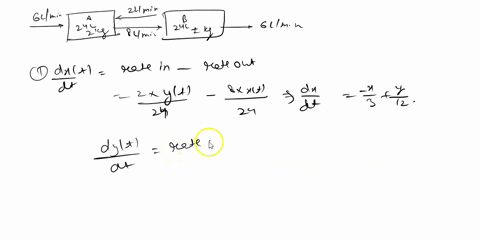 6L/min A 24L 2kg 2L/min 8L/min B 24L ± kg 6L/min
① dx(t)/dt = rate in — rate out
= 2 x y(t)/24 - 8 x x(t)/24 → dx/dt = -x/3 + y/12.
dy(t)/dt = rate